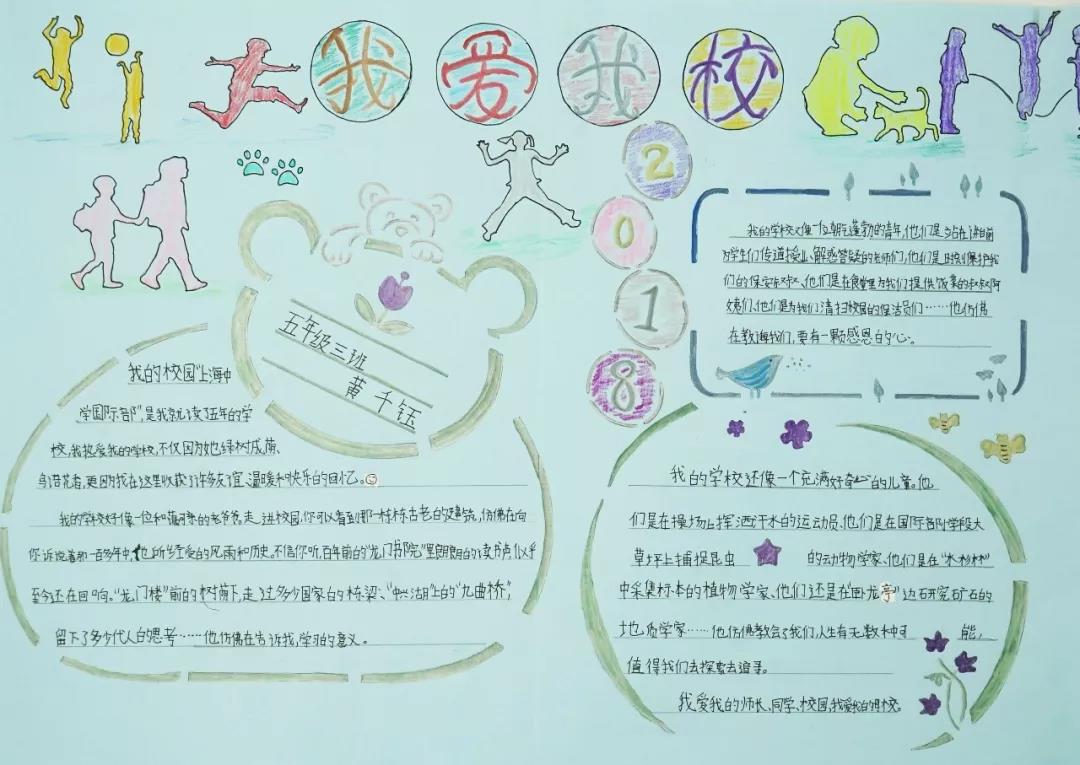 我爱我校
2018
五年级三班
黄千钰
我的校园"上海中
学国际部",是我就读了五年的学
校,我热爱我的学校,不仅因为她绿树成荫、
鸟语花香,更因为我在这里收获了许多友谊、温暖和快乐的回忆。
我的学校好像一位和蔼可亲的老爷爷,走进校园,你可以看到那一栋栋古老的建筑,仿佛在向
你诉说着那一百多年中,他所经受的风雨和历史。不信你听,百年前的"龙门书院"里朗朗的读书声似乎
至今还在回响。"龙门楼"前的树荫下,走过多少国家的栋梁、"中兴湖"上的"九曲桥",
留下了多少代人的思考……他仿佛在告诉我,学习的意义。
我的学校又像一位朝气蓬勃的青年,他们是站在讲台前
为学生们传道授业、解惑答疑的老师们,他们是时刻保护我
们的保安叔叔、他们是在食堂里为我们提供饭菜的叔叔阿
姨们、他们是为我们清扫校园的保洁员们……他仿佛
在教诲我们,要有一颗感恩的心。
我的学校还像一个充满好奇心的儿童。他
们是在操场上挥洒汗水的运动员、他们是在国际部小学段大
草坪上捕捉昆虫的动物学家、他们是在"水杉林"
中采集标本的植物学家、他们还是在"卧龙亭"边研究矿石的
地质学家……他仿佛教会了我们,人生有无数种可能,
值得我们去探索去追寻。
我爱我的师长、同学、校园,我爱我的母校。